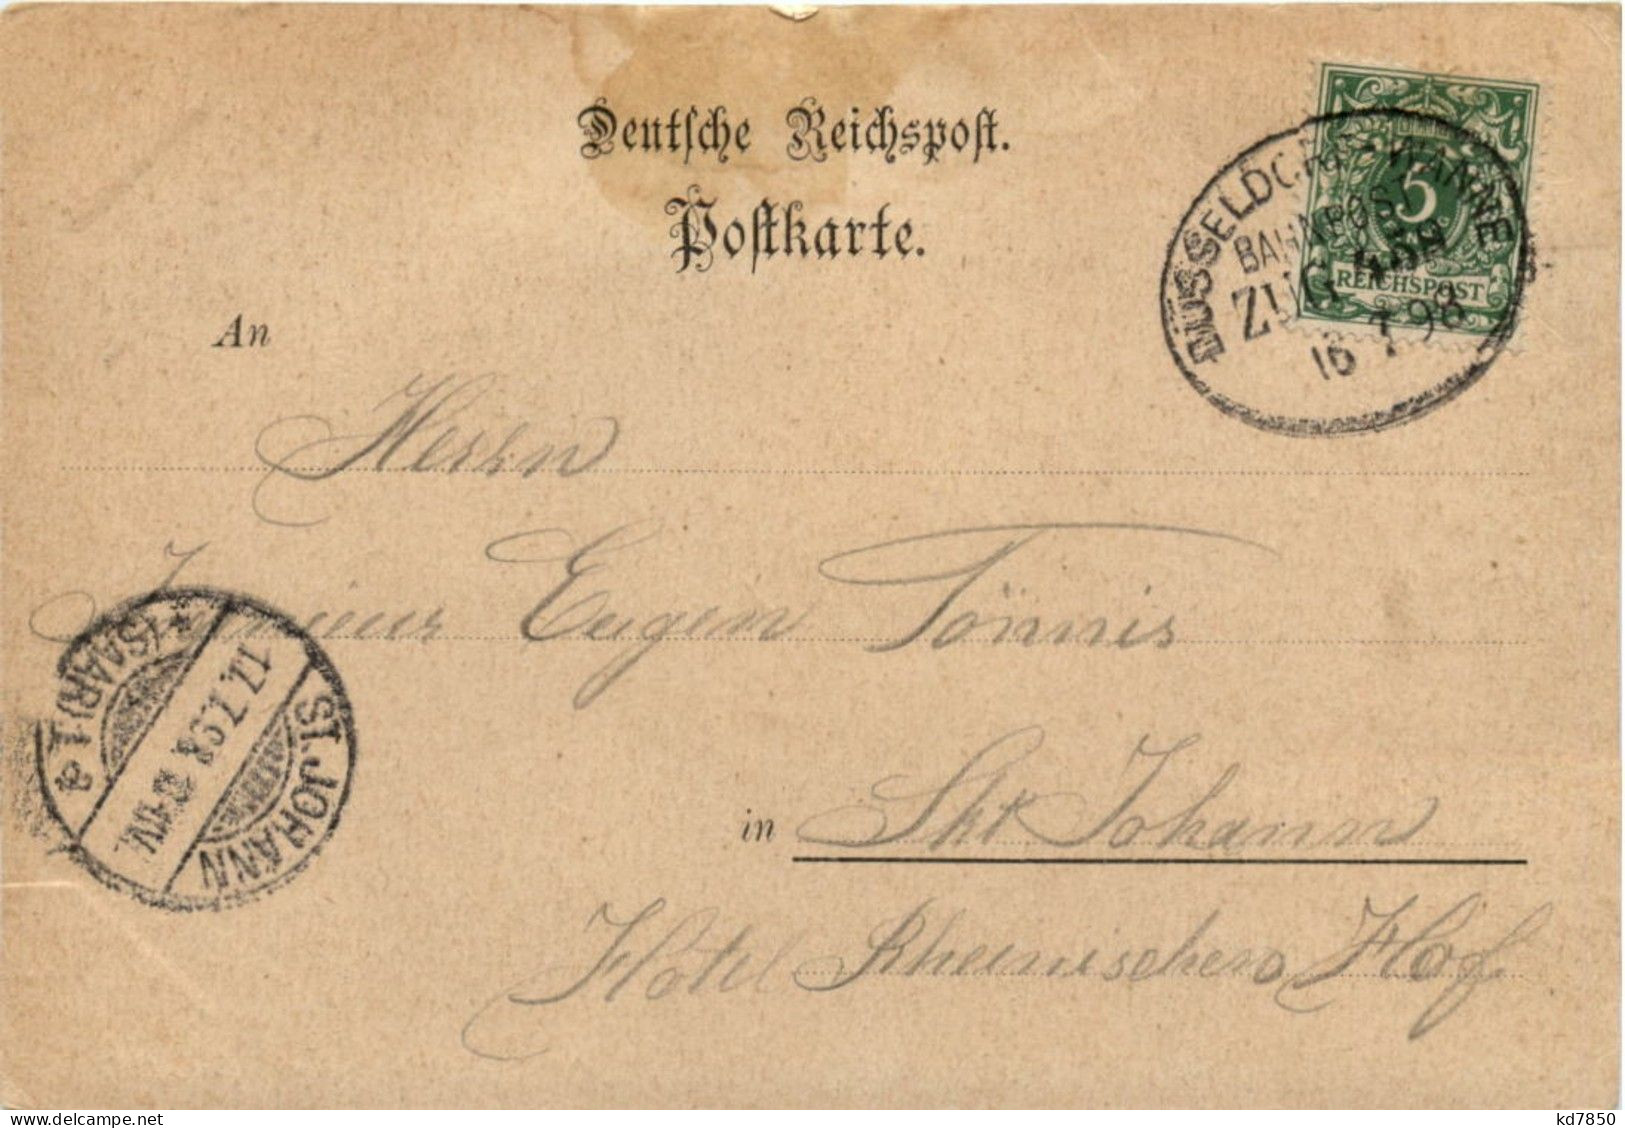 Deutsche Reichspost.
Postkarte.
DÜSSELDORF - WANNE
BAHNPOST
ZUG
16 7 98
5
REICHSPOST
An
Herrn
Eugen Tönnis
in Skt Johann
Hôtel Rheinischer Hof
ST. JOHANN
* (SAAR) 1 a
17.7.98
delcampe.net
kd7850